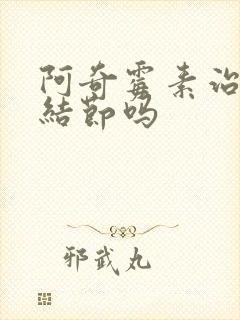 阿奇霉素治
結節吗
邪武丸